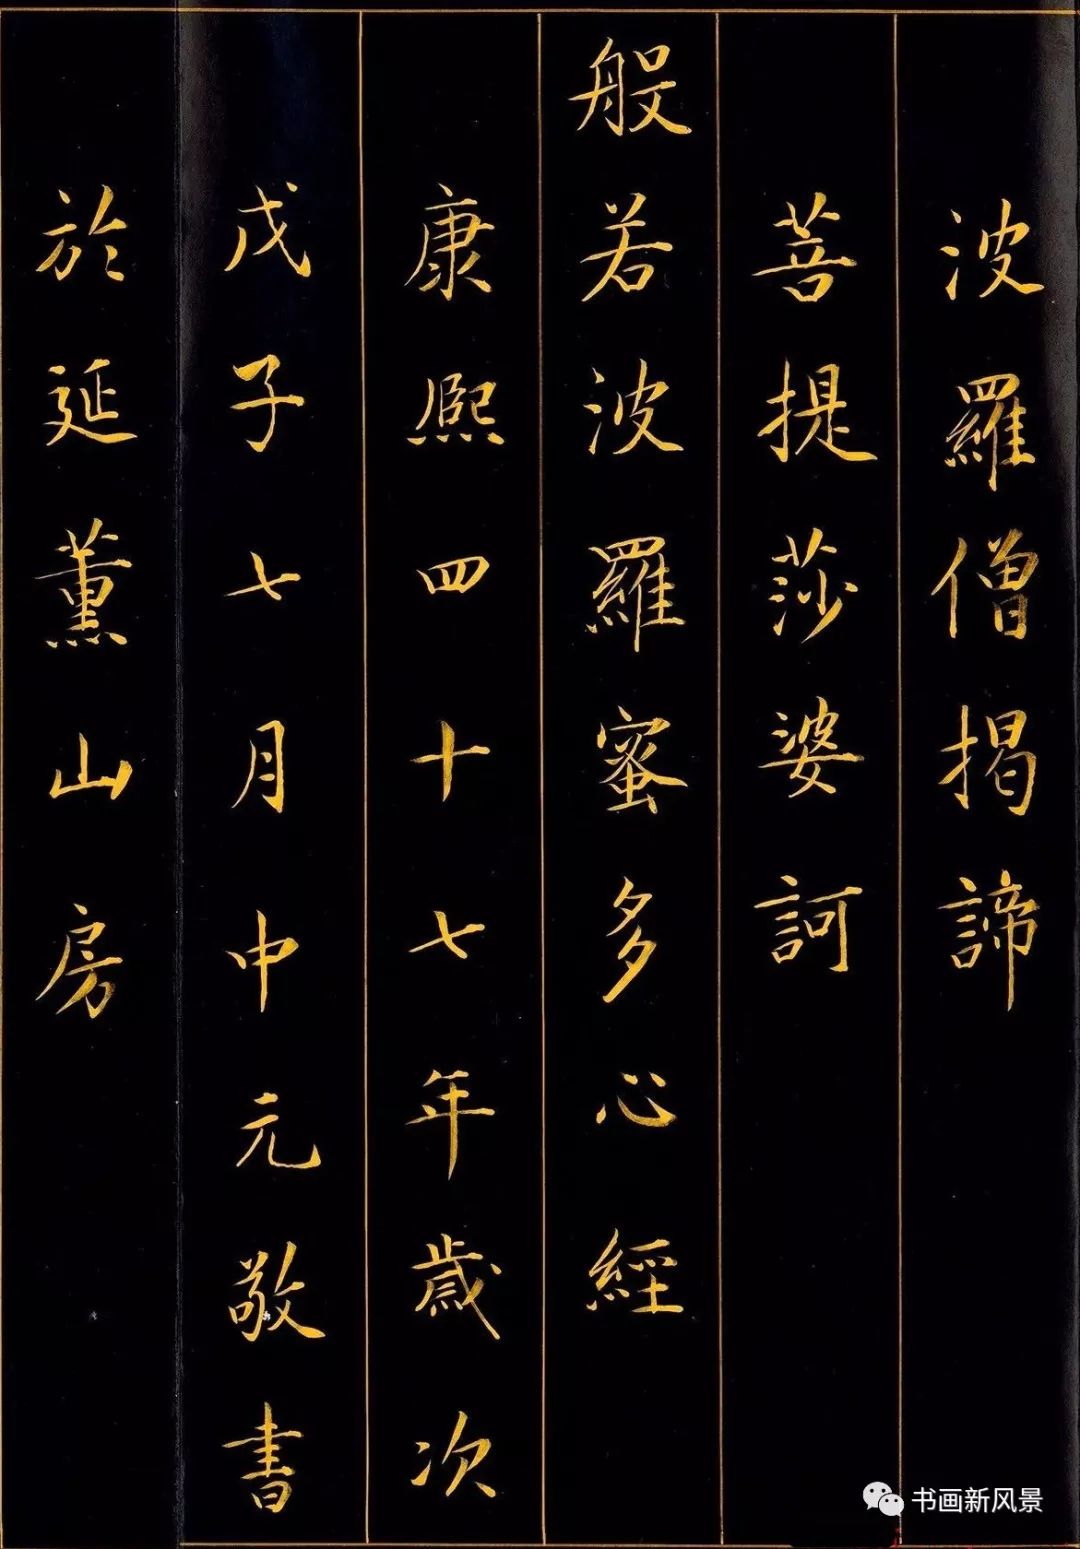 波羅僧揭諦
菩提莎婆訶
般若波羅蜜多心經
康熙四十七年歲次
戊子七月中元敬書
於延薰山房
书画新风景